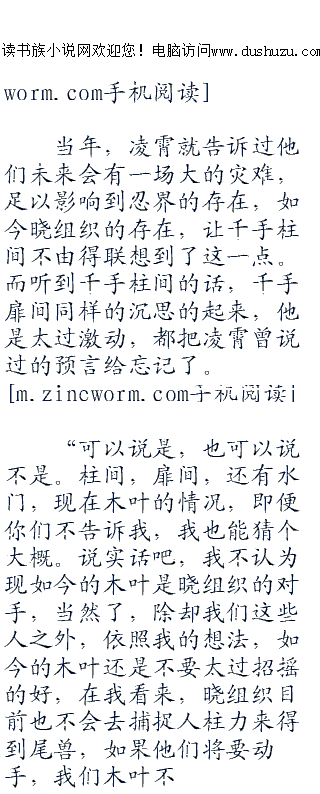 读书族小说网欢迎您！电脑访问www.dushuzu.com
worm.com手机阅读]
当年，凌霄就告诉过他
们未来会有一场大的灾难，
足以影响到忍界的存在，如
今晓组织的存在，让千手柱
间不由得联想到了这一点。
而听到千手柱间的话，千手
扉间同样的沉思的起来，他
是太过激动，都把凌霄曾说
过的预言给忘记了。
[m.zincworm.com手机阅读i
“可以说是，也可以说
不是。柱间，扉间，还有水
门，现在木叶的情况，即便
你们不告诉我，我也能猜个
大概。说实话吧，我不认为
现如今的木叶是晓组织的对
手，当然了，除却我们这些
人之外，依照我的想法，如
今的木叶还是不要太过招摇
的好，在我看来，晓组织目
前也不会去捕捉人柱力来得
到尾兽，如果他们将要动
手，我们木叶不